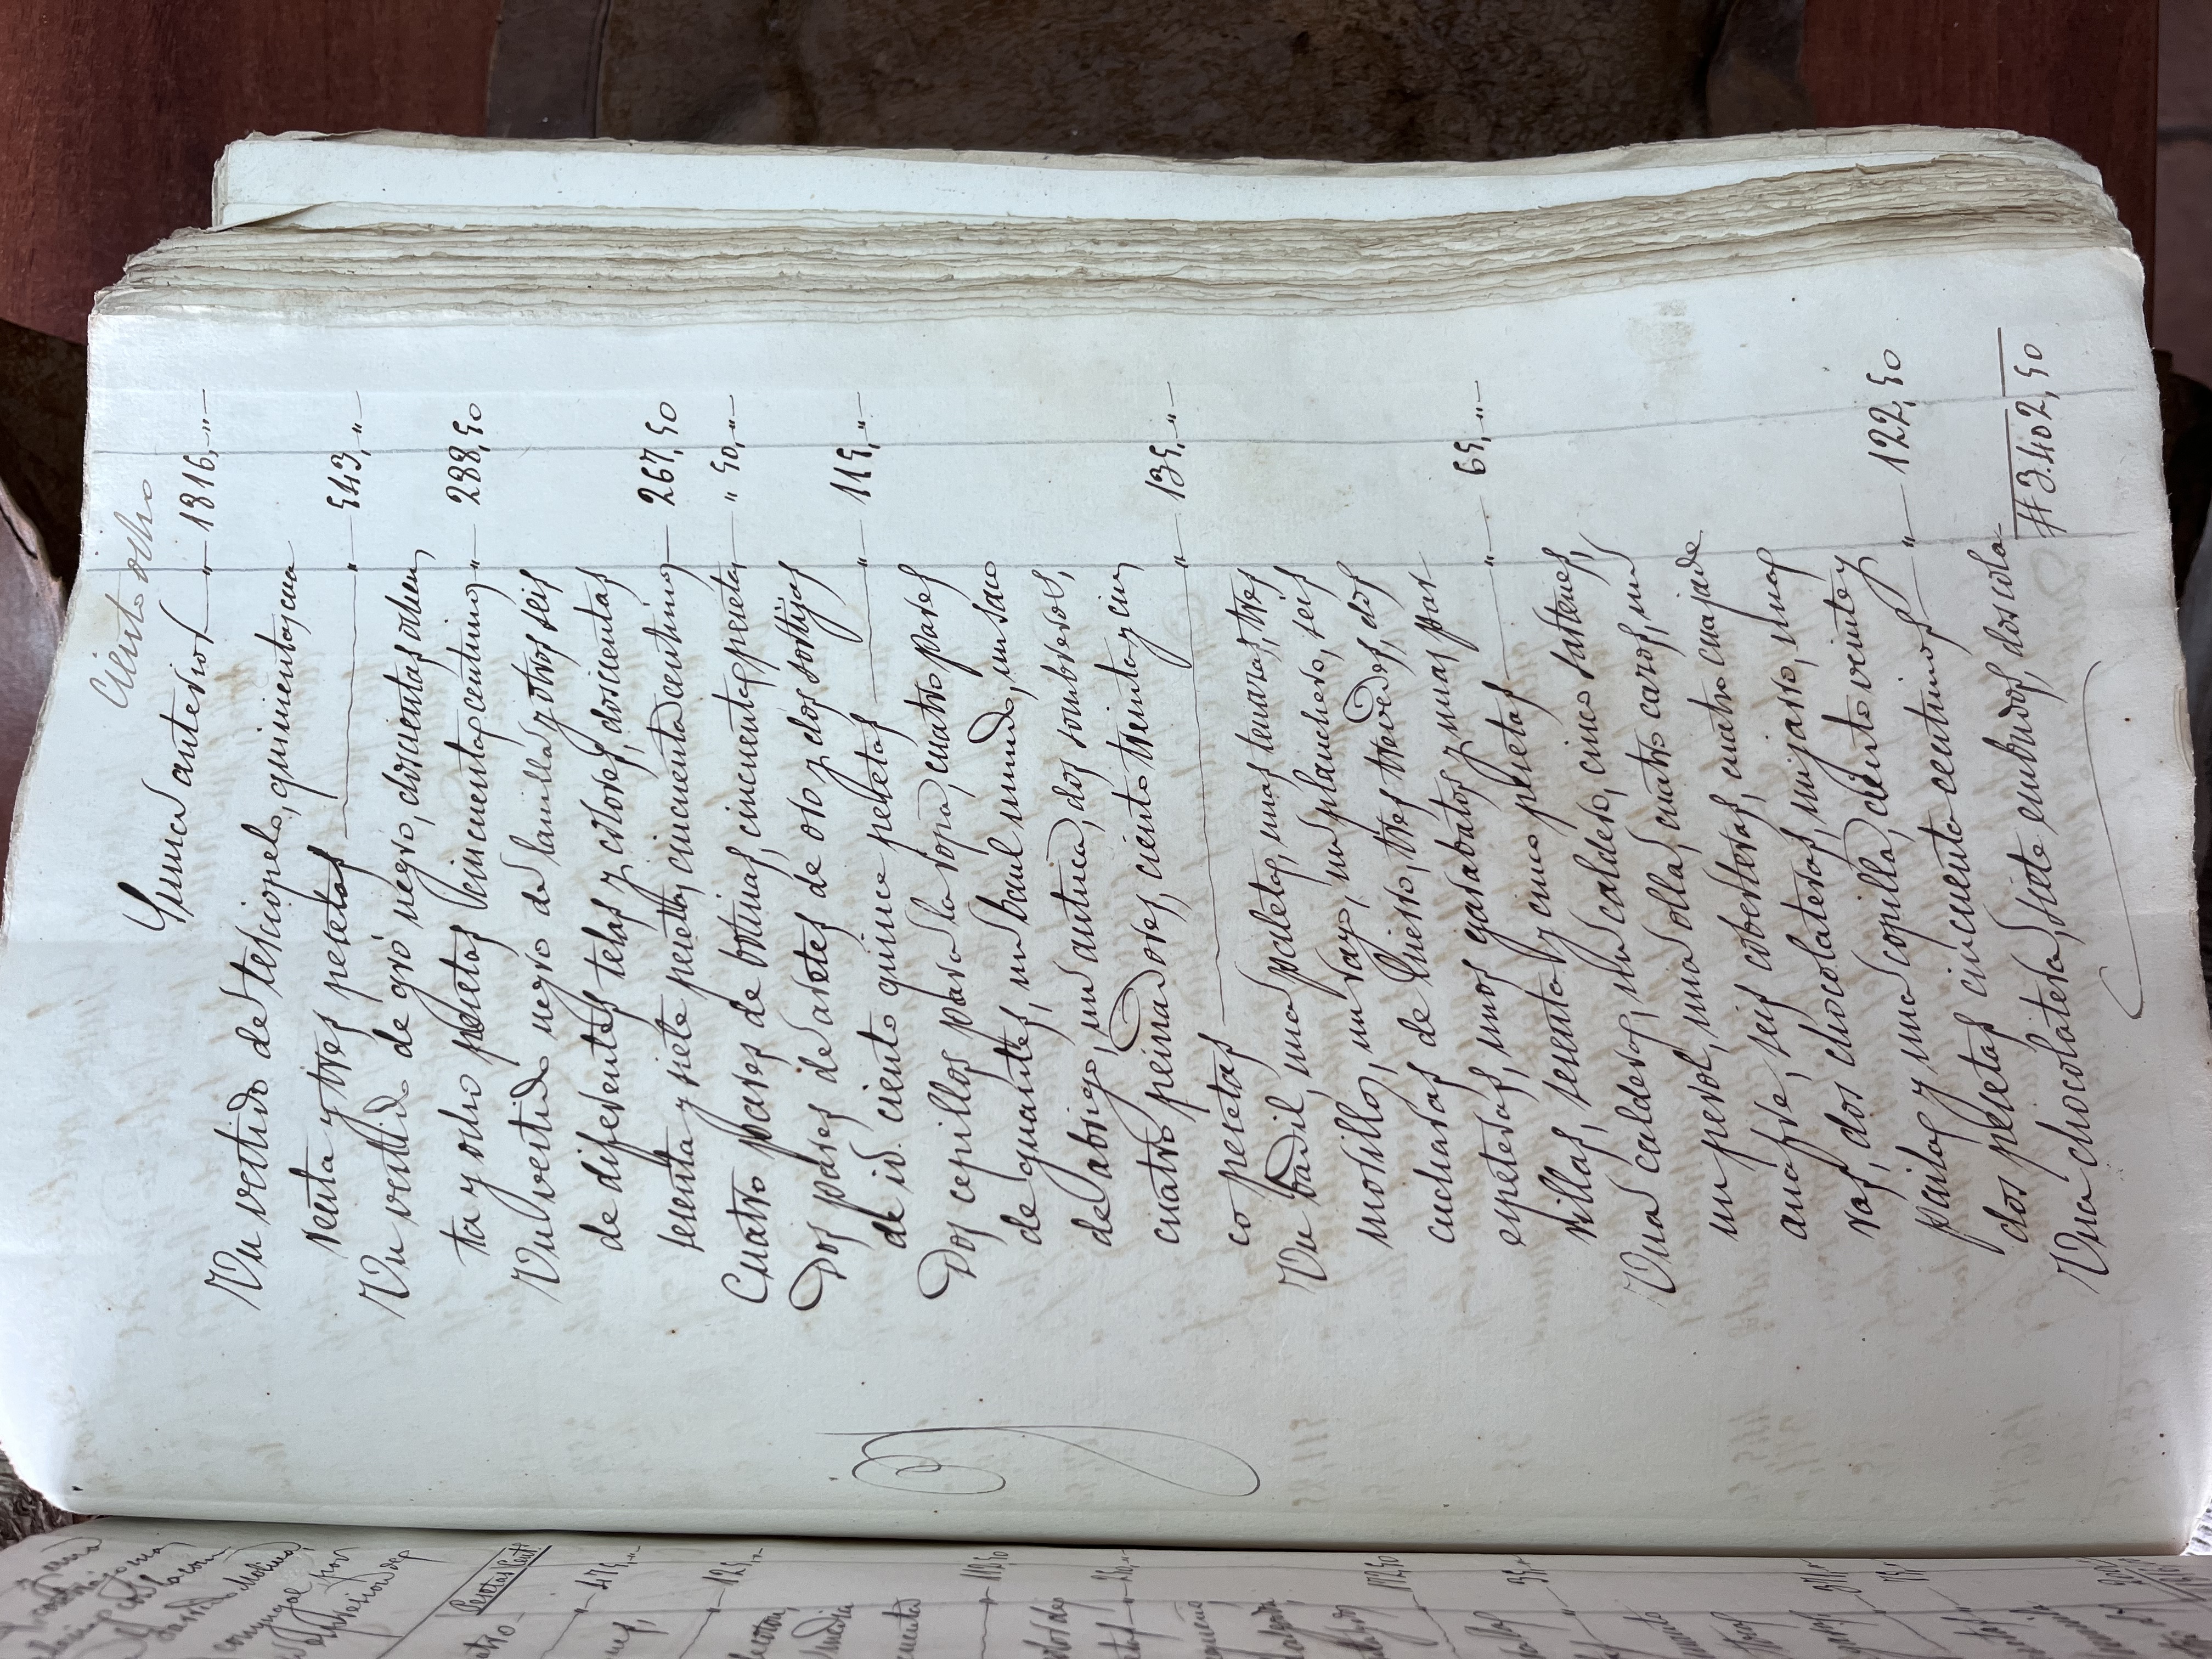 Ciento ocho
Suma anterior " 1816, "
Un vestido de terciopelo, quinientas cua
renta y tres pesetas " 543, "
Un vestido de gró negro, doscientas ochen
ta y ocho pesetas cincuenta centimos " 288,50
Un vestido negro de lanilla y otros seis
de diferentes telas y colores, doscientas
sesenta y siete pesetas cincuenta centimos 267,50
Cuatro pares de botinas, cincuenta pesetas " 50, "
Dos pares de aretes de oro y dos sortijas
de id. ciento quince pesetas " 115, "
Dos cepillos para la ropa, cuatro pares
de guantes, un baul mundo, un saco
de abrigo, un antuca, dos sombreros,
cuatro peinadores, ciento treinta y cin
co pesetas " 135, "
Un badil, una paleta, unas tenazas, tres
morillos, un rayo, un planchero, seis
cucharas de hierro, tres trevedes, dos
espeteras, unos garabatos y unas par
rillas, sesenta y cinco pesetas " 65, "
Una caldera, un caldero, cinco sartenes,
un perol, una olla, cuatro cazos, un
anafre, seis coberteras, cuatro cuajade
ras, dos chocolateras, un jarro, unas
pailas y una copilla, ciento veinte y
dos pesetas cincuenta centimos " 122,50
Una chocolatera, siete embudos, dos cola
# 3.402,50
Pesetas Cents
475, "
125, "
112,50
25, "
172,50